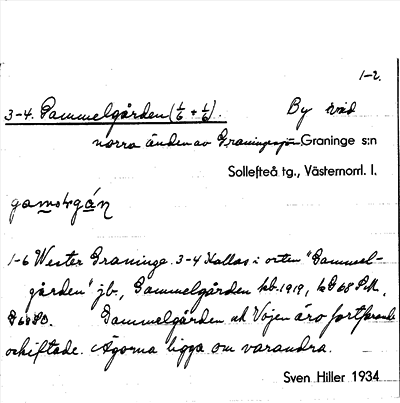 1-2.
3-4. Gammelgården (1/6 + 1/6). By vid
norra änden av Graningesjön Graninge s:n
Sollefteå tg., Västernorrl. l.
1-6 Wester Graninge. 3-4 Kallas i orten "Gammel-
gården" jb., Gammelgården kb. 1919,
Gammelgården och Vojen äro fortfarande
oskiftade. Ägorna ligga om varandra.
Sven Hiller 1934